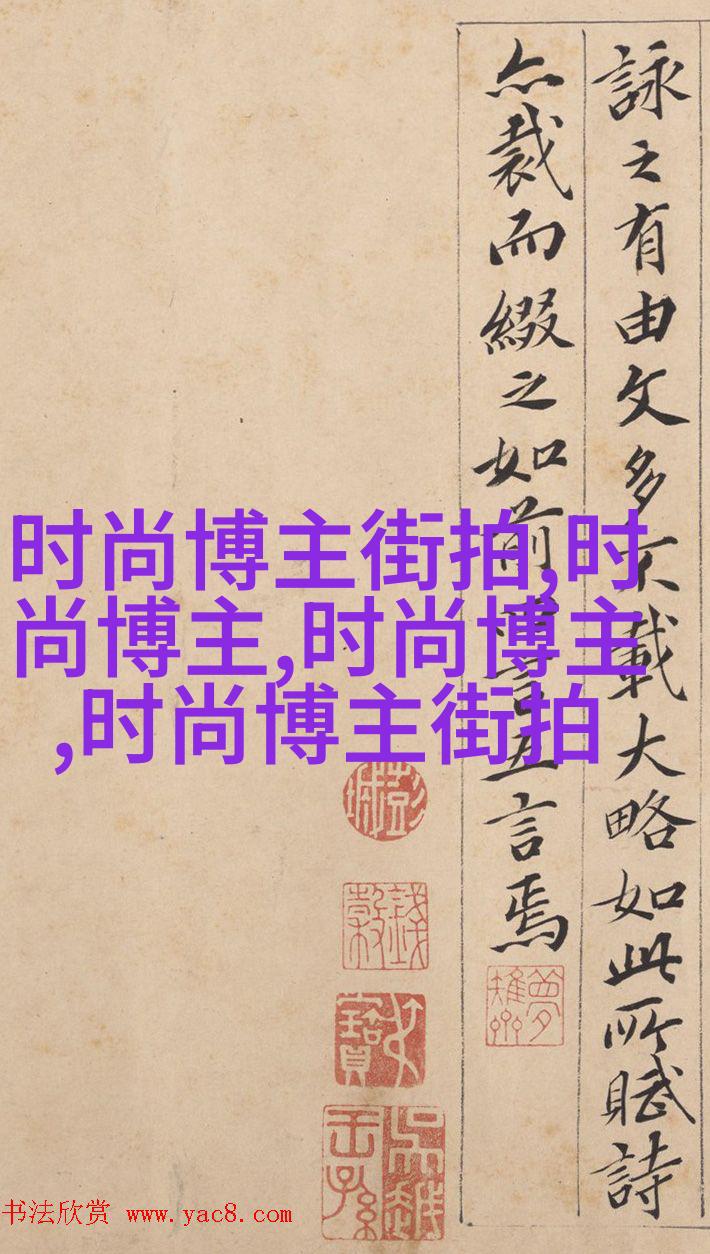 詠之有由文多不載大略如此所賦詩
亦裁而綴之如前言五言焉
时尚博主街拍,时
尚博主,时尚博主
,时尚博主街拍
彭城
錢榖
叔寶
吳越王孫
书法欣赏 www.yac8.com